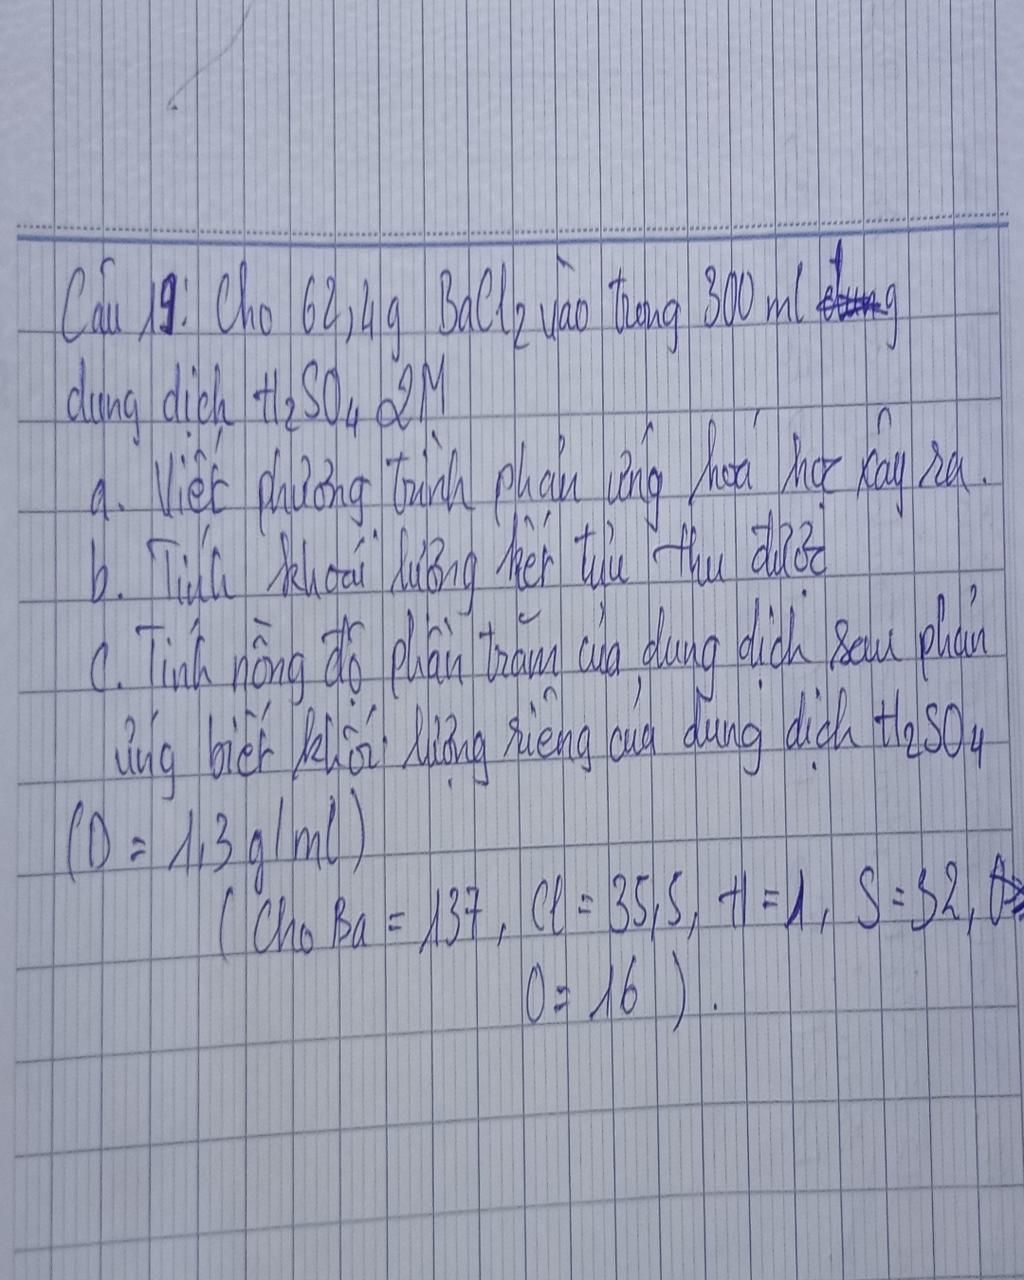 Câu 19: Cho 62,4g BaCl2 vào trong 300 ml
dung dịch H2SO4 2M
a. Viết phương trình phản ứng hoá học xảy ra.
b. Tính khoái lượng kết tủa thu được
c. Tính nồng độ phần trăm của dung dịch sau phản
ứng biết khối lượng riêng của dung dịch H2SO4
(D = 1,3 g/ml)
(Cho Ba = 137, Cl = 35,5, H = 1, S = 32,
O = 16).